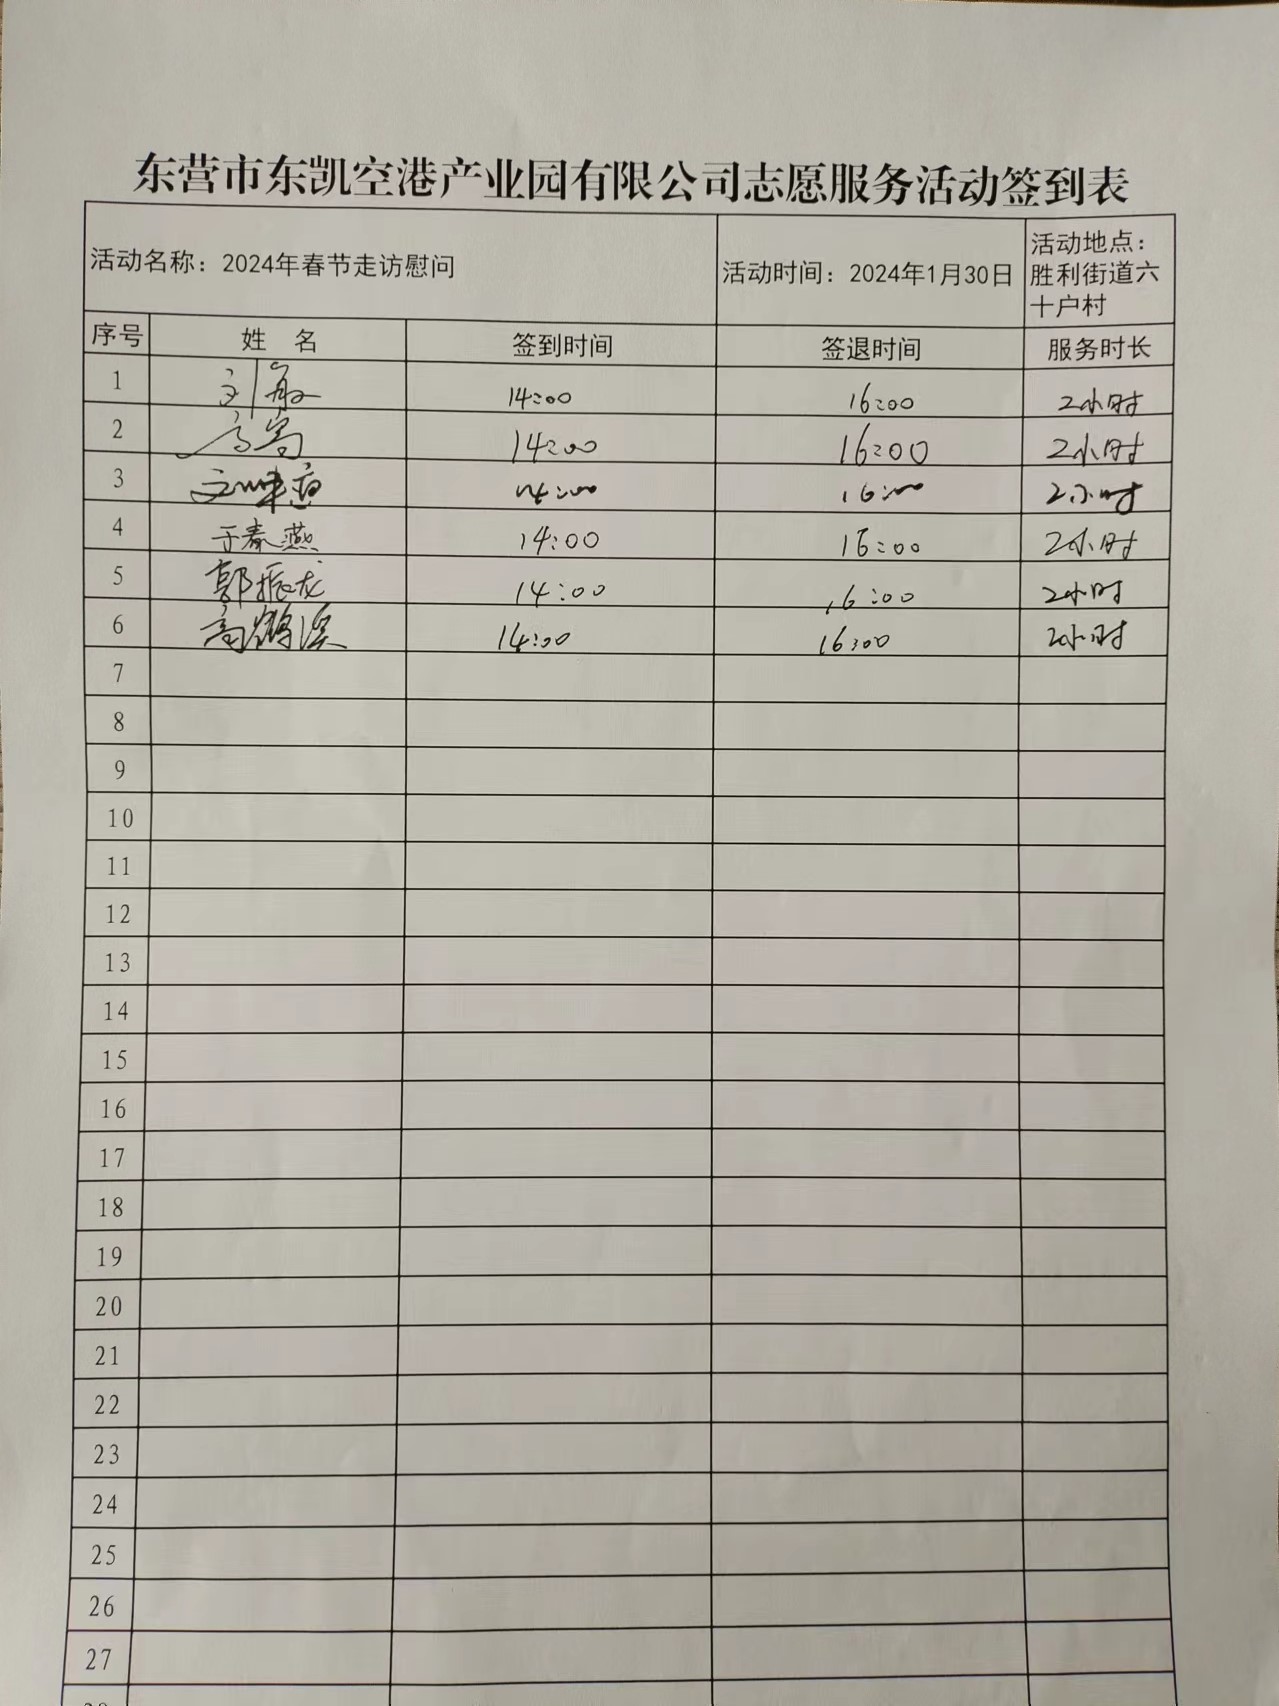 东营市东凯空港产业园有限公司志愿服务活动签到表
活动名称：2024年春节走访慰问 活动时间：2024年1月30日 活动地点：
胜利街道六
十户村
序号 姓 名 签到时间 签退时间 服务时长
1 刘敏 14:00 16:00 2小时
2 14:00 16:00 2小时
3 14:00 16:00 2小时
4 于春燕 14:00 16:00 2小时
5 郭振龙 14:00 16:00 2小时
6 高鹤溪 14:00 16:00 2小时
7
8
9
10
11
12
13
14
15
16
17
18
19
20
21
22
23
24
25
26
27